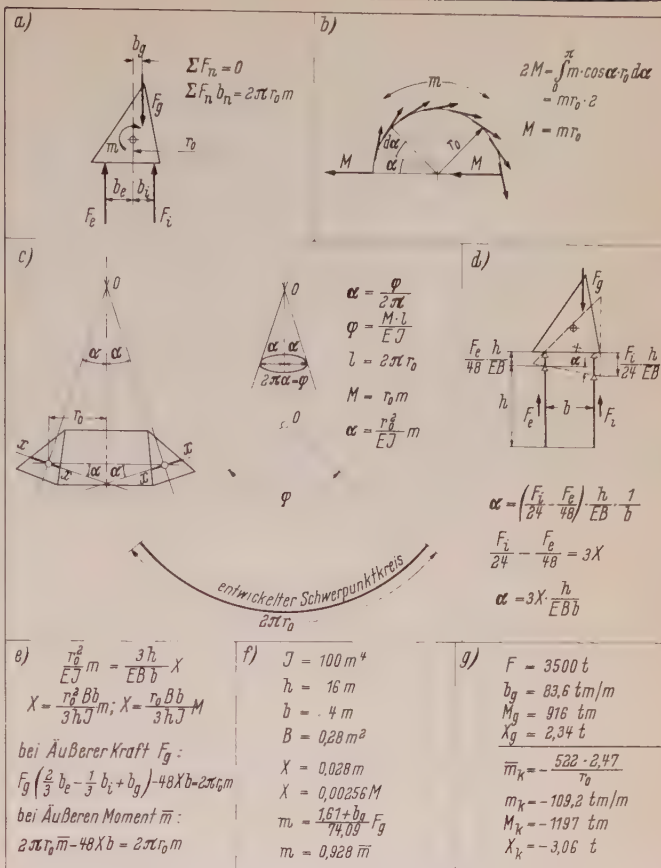 a)
b_g
F_g
m
r_0
b_e
b_i
F_e
F_i
ΣF_n = 0
ΣF_n b_n = 2πr_0m
b)
m
dα
α
r_0
M
M
2M = ∫_0^π m·cosα·r_0dα
= mr_0·2
M = mr_0
c)
O
α
α
r_0
x
x
α
α
x
x
O
α
α
2πα=φ
O
φ
entwickelter Schwerpunktkreis
2πr_0
α = φ/2π
φ = M·l/EJ
l = 2πr_0
M = r_0m
α = r_0²/EJ m
d)
F_g
F_e/48 h/EB
α
F_i/24 h/EB
h
F_e
b
F_i
α = (F_i/24 - F_e/48)·h/EB·1/b
F_i/24 - F_e/48 = 3X
α = 3X·h/EBb
e)
r_0²/EJ m = 3h/EBb X
X = r_0²Bb/3hJ m; X = r_0Bb/3hJ M
bei Äußerer Kraft F_g :
F_g(2/3 b_e - 1/3 b_i + b_g) - 48Xb = 2πr_0m
bei Äußeren Moment m̄ :
2πr_0m̄ - 48Xb = 2πr_0m
f)
J = 100 m⁴
h = 16 m
b = 4 m
B = 0,28 m²
X = 0,028 m
X = 0,00256 M
m = 1,61+b_g/74,09 F_g
m = 0,928 m̄
g)
F = 3500 t
b_g = 83,6 tm/m
M_g = 916 tm
X_g = 2,34 t
m̄_k = - 522·2,47/r_0
m_k = -109,2 tm/m
M_k = -1197 tm
X_k = -3,06 t